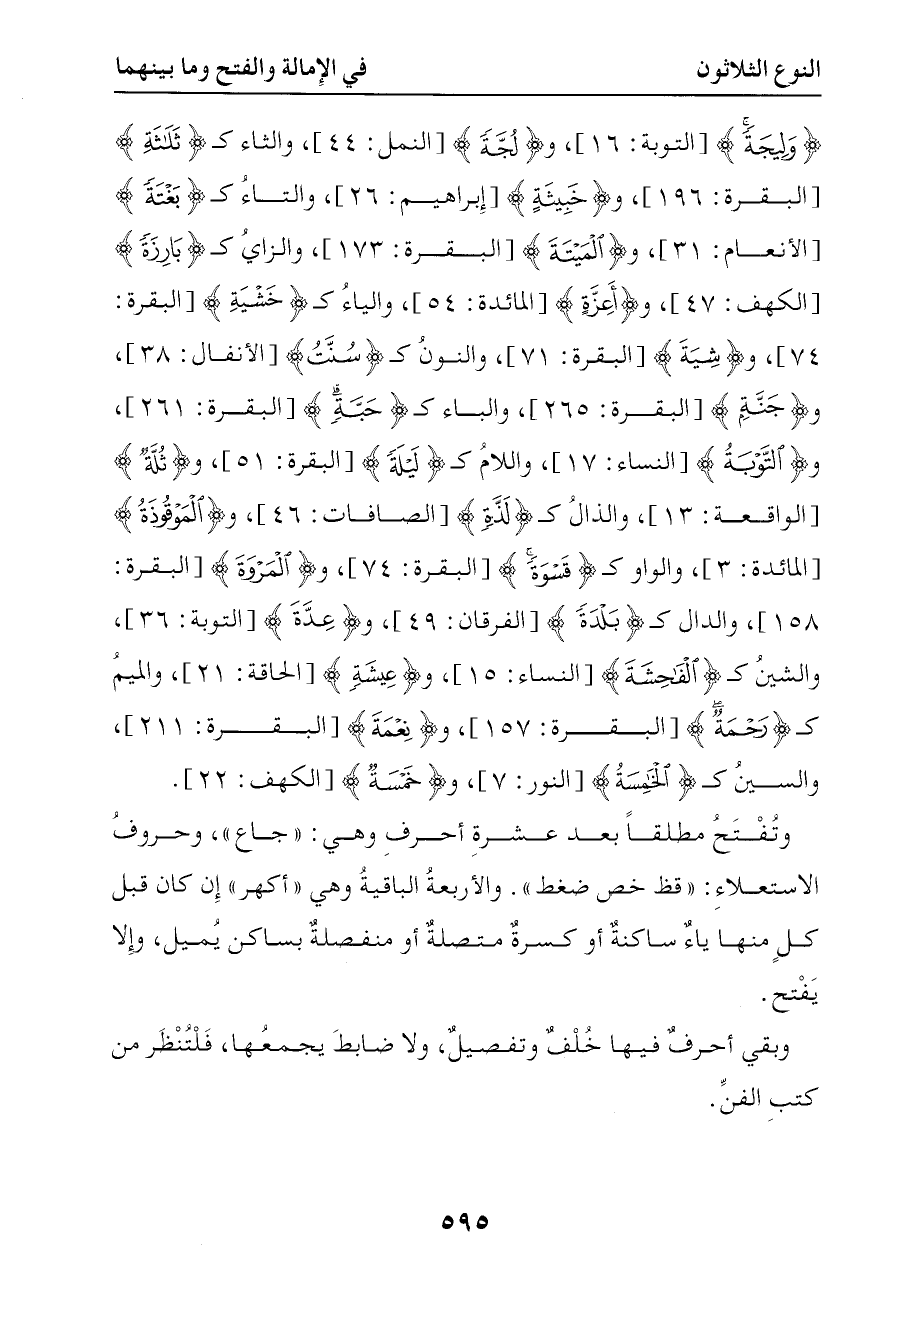 النوع الثلاثون
في الإمالة والفتح وما بينهما
﴿ وَلِيجَةًۚ ﴾ [التوبة: ١٦]، و﴿ لُجَّةً ﴾ [النمل: ٤٤]، والثاء كـ ﴿ ثَلَٰثَةِ ﴾
[البقرة: ١٩٦]، و﴿ خَبِيثَةٍ ﴾ [إبراهيم: ٢٦]، والتاءُ كـ ﴿ بَغْتَةً ﴾
[الأنعام: ٣١]، و﴿ ٱلْمَيْتَةَ ﴾ [البقرة: ١٧٣]، والزايُ كـ ﴿ بَارِزَةً ﴾
[الكهف: ٤٧]، و﴿ أَعِزَّةٍ ﴾ [المائدة: ٥٤]، والياءُ كـ ﴿ خَشْيَةِ ﴾ [البقرة:
٧٤]، و﴿ شِيَةَ ﴾ [البقرة: ٧١]، والنونُ كـ ﴿ سُنَّتُ ﴾ [الأنفال: ٣٨]،
و﴿ جَنَّةٍ ﴾ [البقرة: ٢٦٥]، والباء كـ ﴿ حَبَّةٍۗ ﴾ [البقرة: ٢٦١]،
و﴿ ٱلتَّوْبَةُ ﴾ [النساء: ١٧]، واللامُ كـ ﴿ لَيْلَةً ﴾ [البقرة: ٥١]، و﴿ ثُلَّةٌ ﴾
[الواقعة: ١٣]، والذالُ كـ ﴿ لَذَّةٍ ﴾ [الصافات: ٤٦]، و﴿ ٱلْمَوْقُوذَةُ ﴾
[المائدة: ٣]، والواو كـ ﴿ قَسْوَةًۚ ﴾ [البقرة: ٧٤]، و﴿ ٱلْمَرْوَةَ ﴾ [البقرة:
١٥٨]، والدال كـ ﴿ بَلْدَةً ﴾ [الفرقان: ٤٩]، و﴿ عِدَّةَ ﴾ [التوبة: ٣٦]،
والشينُ كـ ﴿ ٱلْفَٰحِشَةَ ﴾ [النساء: ١٥]، و﴿ عِيشَةٍ ﴾ [الحاقة: ٢١]، والميمُ
كـ ﴿ رَحْمَةٌۖ ﴾ [البقرة: ١٥٧]، و﴿ نِعْمَةَ ﴾ [البقرة: ٢١١]،
والسينُ كـ ﴿ ٱلْخَٰمِسَةُ ﴾ [النور: ٧]، و﴿ خَمْسَةٌ ﴾ [الكهف: ٢٢].
وتُفْتَحُ مطلقاً بعد عشرة أحرفٍ وهي: «جاع»، وحروفُ
الاستعلاءِ: «قظ خص ضغط». والأربعةُ الباقيةُ وهي «أكهر» إن كان قبل
كلٍ منها ياءٌ ساكنةٌ أو كسرةٌ متصلةٌ أو منفصلةٌ بساكن يُميل، وإلا
يَفْتح.
وبقي أحرفٌ فيها خُلْفٌ وتفصيلٌ، ولا ضابطَ يجمعُها، فَلْتُنْظَر من
كتبِ الفنِّ.
٥٩٥